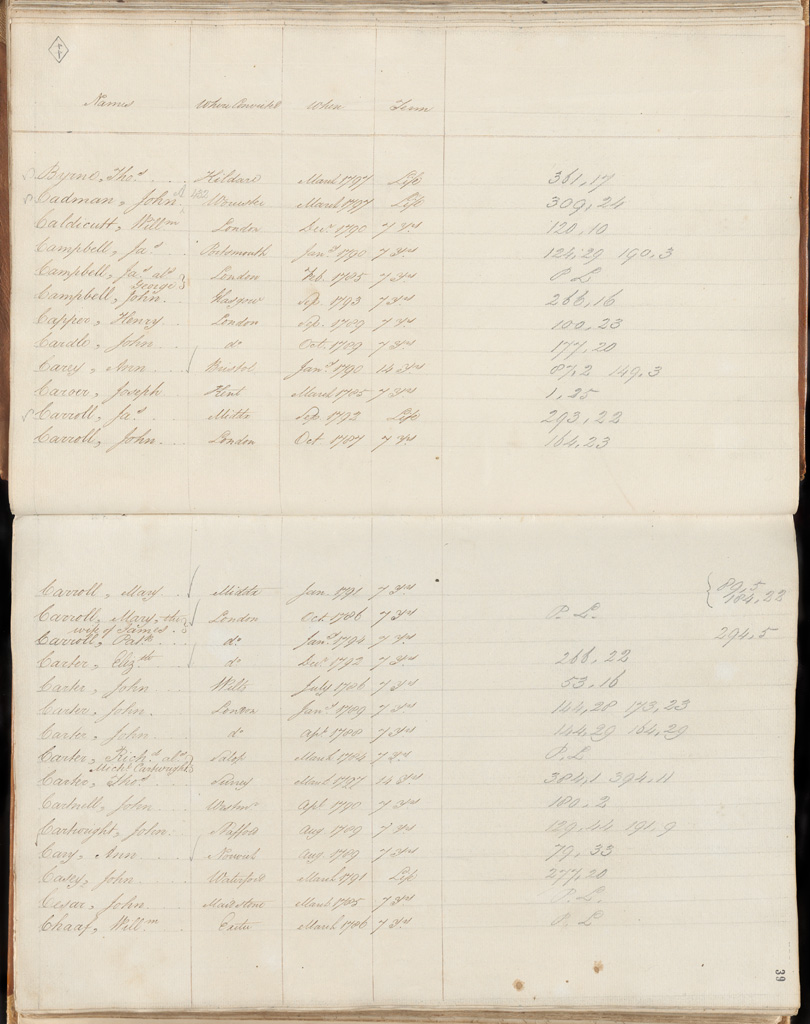 Names Where Convicted When Term
Byrne, Thos. Kildare March 1797 Life 361,17
Cadman, John Worcester March 1797 Life 309,24
Caldicutt, Willm London Decr 1790 7 yrs 120,10
Campbell, Jas Portsmouth Jany 1790 7 yrs 124,29 190,3
Campbell, Jas als London Feb. 1785 7 yrs P. L
George
Campbell, John Glasgow Sep. 1793 7 yrs 266,16
Capper, Henry London Sep. 1789 7 yrs 100,23
Cardle, John do Oct. 1789 7 yrs 177,20
Carey, Ann Bristol Jany 1790 14 yrs 87,2 149,3
Carver, Joseph Kent March 1785 7 yrs 1,25
Carroll, Jas Middx Sep 1792 Life 293,22
Carroll, John London Oct 1787 7 yrs 164,23
Carroll, Mary Middx Jan 1791 7 yrs 89,5
184,22
Carroll, Mary, the London Oct 1786 7 yrs P. L.
wife of James
Carroll, Patk do Jany 1794 7 yrs 294,5
Carter, Elizth do Decr 1792 7 yrs 266,22
Carter, John Wilts July 1786 7 yrs 53,16
Carter, John London Jany 1789 7 yrs 144,28 173,23
Carter, John do Apl 1788 7 yrs 144,29 164,29
Carter, Richd als Salop March 1784 7 yrs P. L
Michl Cartwright
Carter, Thos Surrey March 1797 14 yrs 384,1 394,11
Cartnell, John Westmr Apl 1790 7 yrs 180,2
Cartwright, John Stafford Aug 1789 7 yrs 129,44 191,9
Cary, Ann Norwich Aug 1789 7 yrs 79,33
Casey, John Waterford March 1791 Life 277,20
Cesar, John Maidstone March 1785 7 yrs P. L.
Chaaf, Willm Exeter March 1786 7 yrs P. L
39